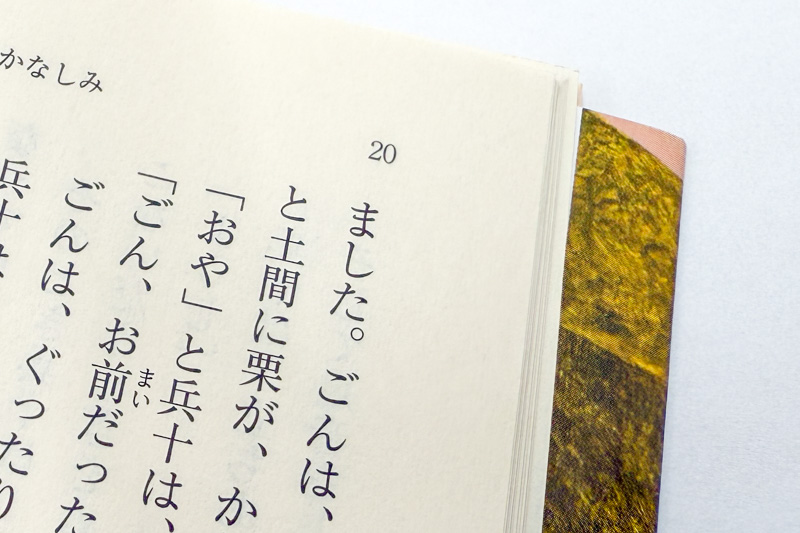 かなしみ
20
ました。ごんは、
と土間に栗が、か
「おや」と兵十は、
「ごん、お前だった
まい
ごんは、ぐったり
兵十は